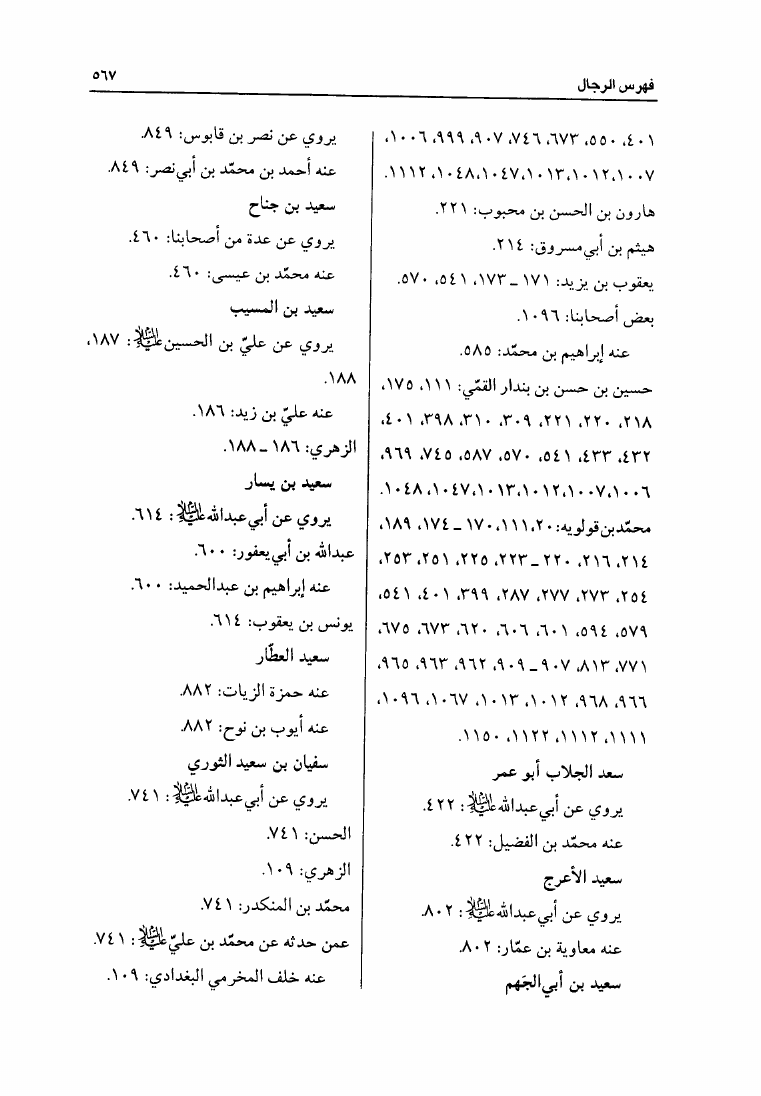 فهرس الرجال
٥٦٧
٤٠١، ٥٥٠، ٦٧٣، ٧٤٦، ٩٠٧، ٩٩٩، ١٠٠٦،
١٠٠٧، ١٠١٢، ١٠١٣، ١٠٤٧، ١٠٤٨، ١١١٢.
هارون بن الحسن بن محبوب: ٢٢١.
هيثم بن أبي‌مسروق: ٢١٤.
يعقوب بن يزيد: ١٧١ ـ ١٧٣، ٥٤١، ٥٧٠.
بعض أصحابنا: ١٠٩٦.
عنه إبراهيم بن محمّد: ٥٨٥.
حسين بن حسن بن بندار القمّي: ١١١، ١٧٥،
٢١٨، ٢٢٠، ٢٢١، ٣٠٩، ٣١٠، ٣٩٨، ٤٠١،
٤٣٢، ٤٣٣، ٥٤١، ٥٧٠، ٥٨٧، ٧٤٥، ٩٦٩،
١٠٠٦، ١٠٠٧، ١٠١٢، ١٠١٣، ١٠٤٧، ١٠٤٨.
محمّد بن قولويه: ٢٠، ١١١، ١٧٠ ـ ١٧٤، ١٨٩،
٢١٤، ٢١٦، ٢٢٠ ـ ٢٢٣، ٢٢٥، ٢٥١، ٢٥٣،
٢٥٤، ٢٧٣، ٢٧٧، ٢٨٧، ٣٩٩، ٤٠١، ٥٤١،
٥٧٩، ٥٩٤، ٦٠١، ٦٠٦، ٦٢٠، ٦٧٣، ٦٧٥،
٧٧١، ٨١٣، ٩٠٧ ـ ٩٠٩، ٩٦٢، ٩٦٣، ٩٦٥،
٩٦٦، ٩٦٨، ١٠١٢، ١٠١٣، ١٠٦٧، ١٠٩٦،
١١١١، ١١١٢، ١١٢٢، ١١٥٠.
سعد الجلاب أبو عمر
يروي عن أبي‌عبدالله عليه‌السلام: ٤٢٢.
عنه محمّد بن الفضيل: ٤٢٢.
سعيد الأعرج
يروي عن أبي‌عبدالله عليه‌السلام: ٨٠٢.
عنه معاوية بن عمّار: ٨٠٢.
سعيد بن أبي‌الجَهم
يروي عن نصر بن قابوس: ٨٤٩.
عنه أحمد بن محمّد بن أبي‌نصر: ٨٤٩.
سعيد بن جناح
يروي عن عدة من أصحابنا: ٤٦٠.
عنه محمّد بن عيسى: ٤٦٠.
سعيد بن المسيب
يروي عن عليّ بن الحسين عليه‌السلام: ١٨٧،
١٨٨.
عنه عليّ بن زيد: ١٨٦.
الزهري: ١٨٦ ـ ١٨٨.
سعيد بن يسار
يروي عن أبي‌عبدالله عليه‌السلام: ٦١٤.
عبدالله بن أبي‌يعفور: ٦٠٠.
عنه إبراهيم بن عبدالحميد: ٦٠٠.
يونس بن يعقوب: ٦١٤.
سعيد العطّار
عنه حمزة الزيات: ٨٨٢.
عنه أيوب بن نوح: ٨٨٢.
سفيان بن سعيد الثوري
يروي عن أبي‌عبدالله عليه‌السلام: ٧٤١.
الحسن: ٧٤١.
الزهري: ١٠٩.
محمّد بن المنكدر: ٧٤١.
عمن حدثه عن محمّد بن عليّ عليه‌السلام: ٧٤١.
عنه خلف المخرمي البغدادي: ١٠٩.